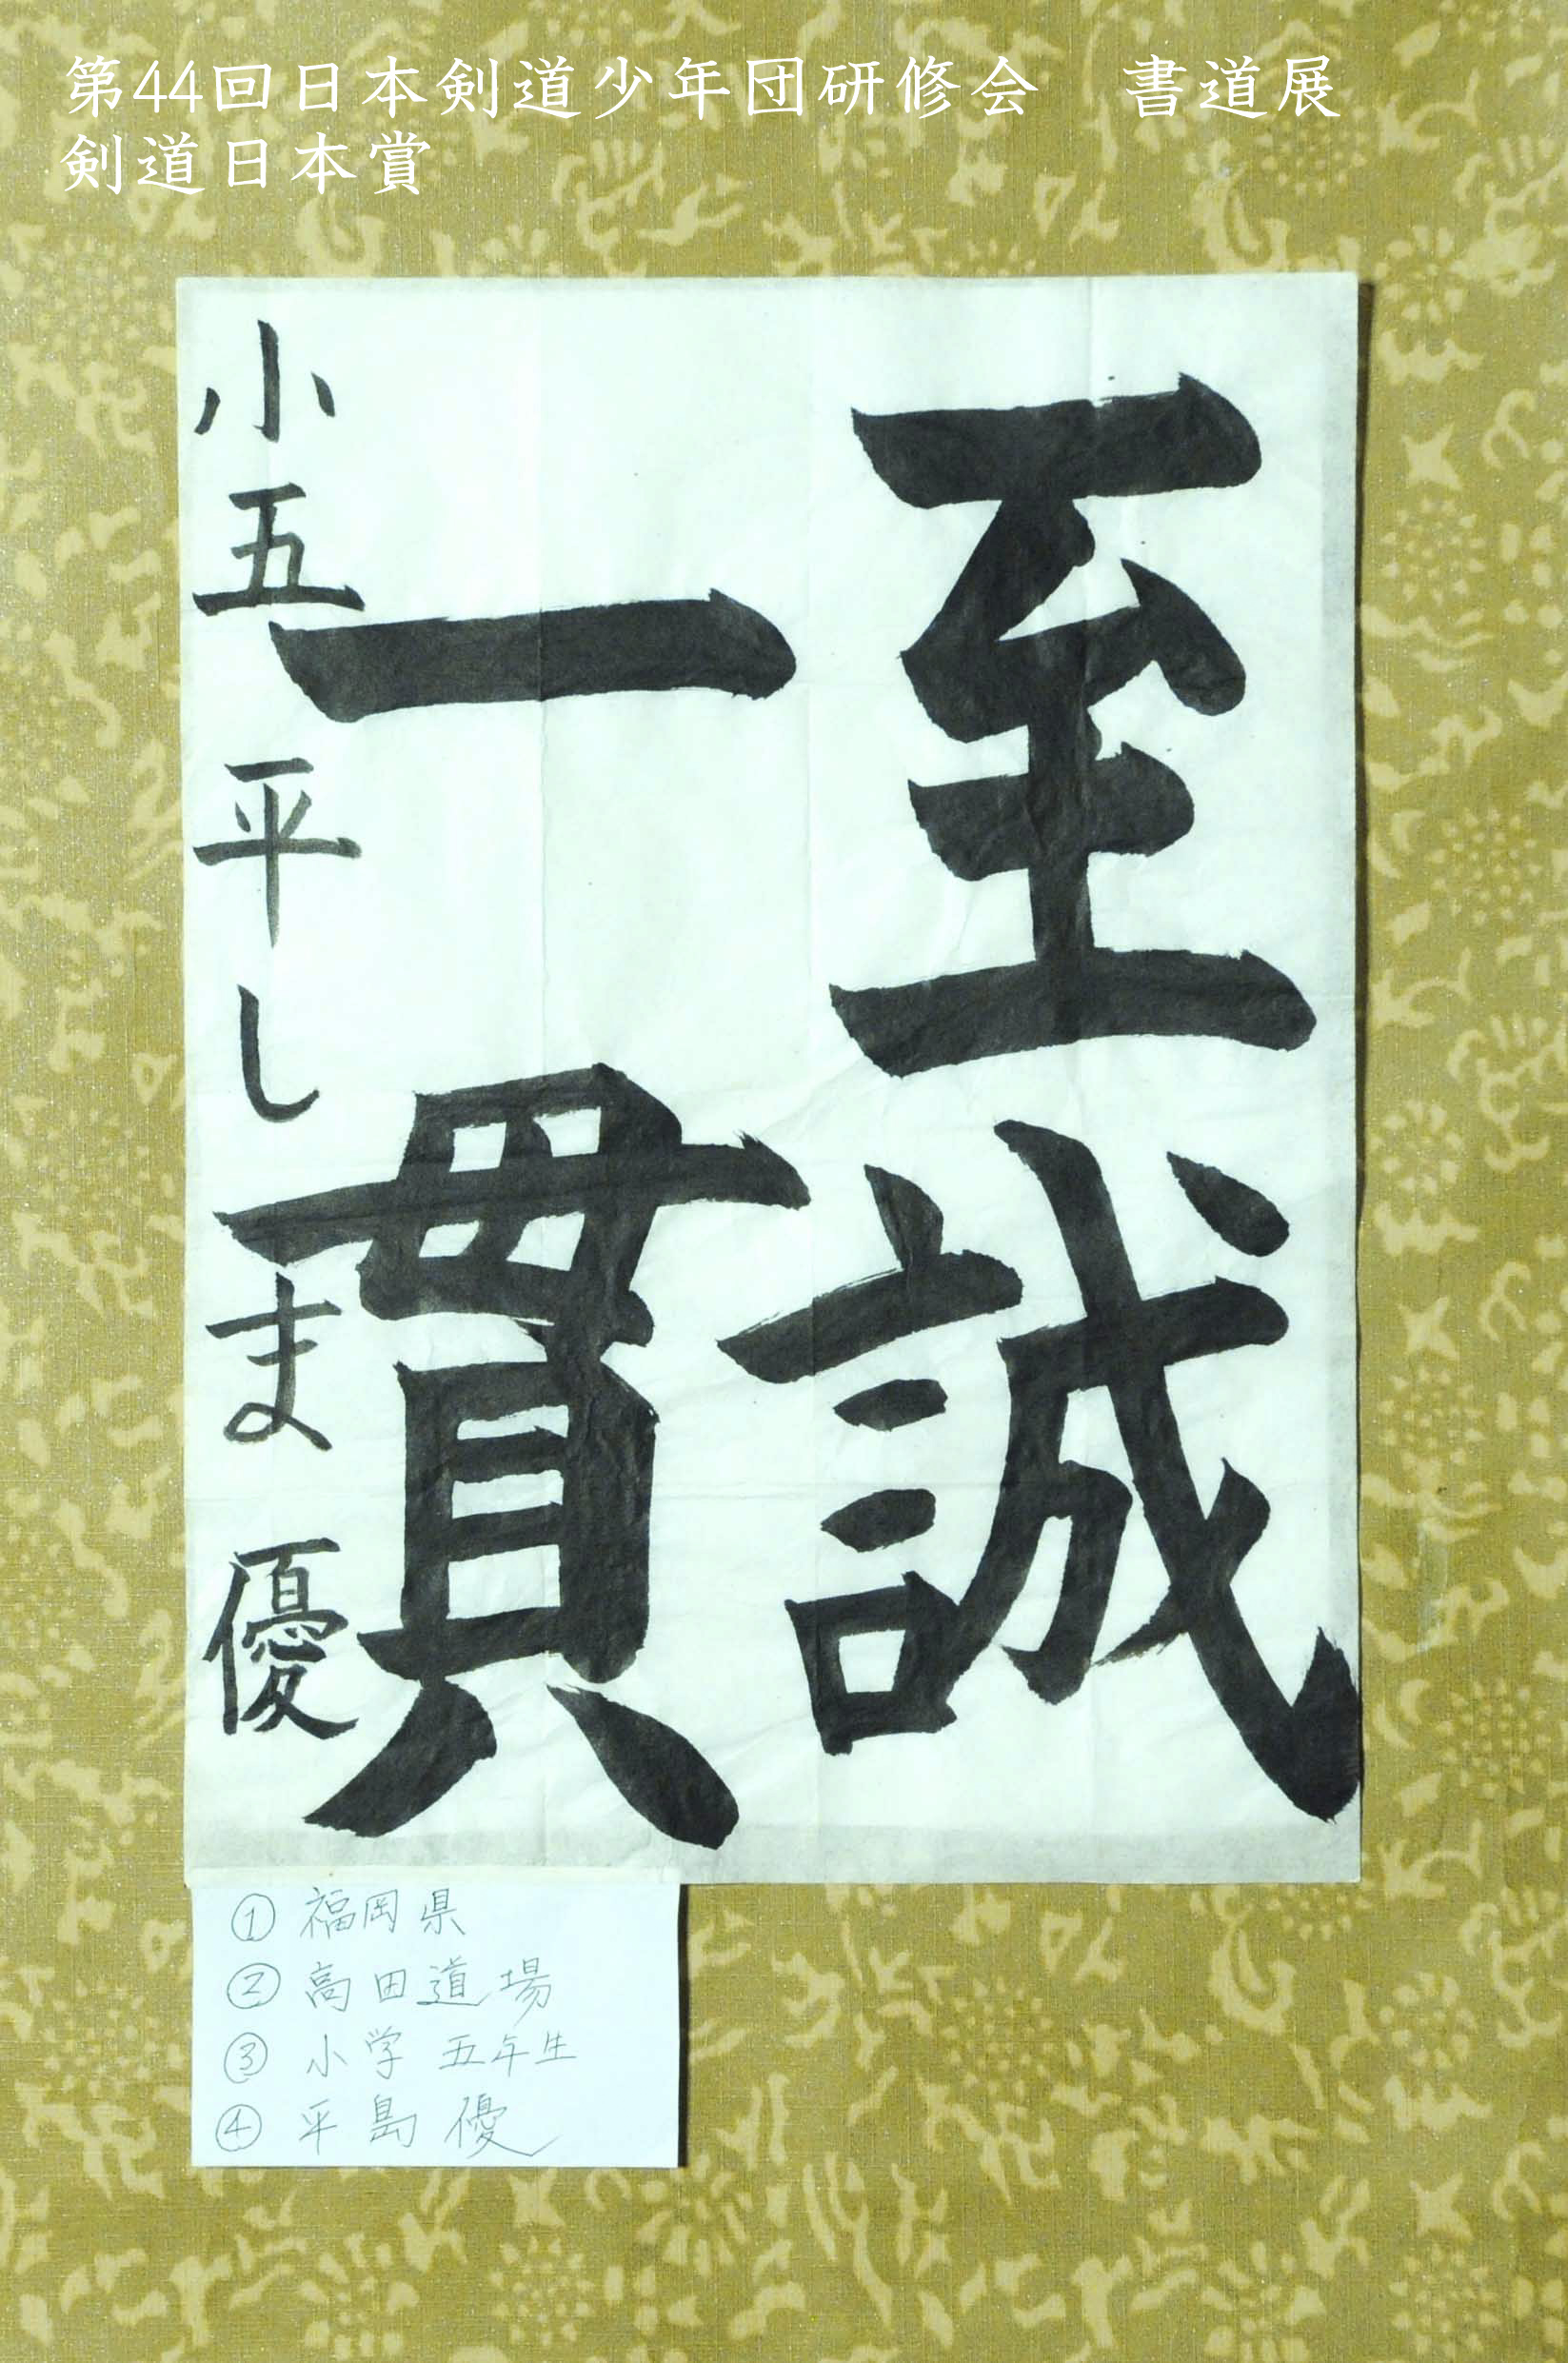 第44回日本剣道少年団研修会　書道展
剣道日本賞
至誠
一貫
小五 平しま 優
① 福岡県
② 高田道場
③ 小学 五年生
④ 平島 優